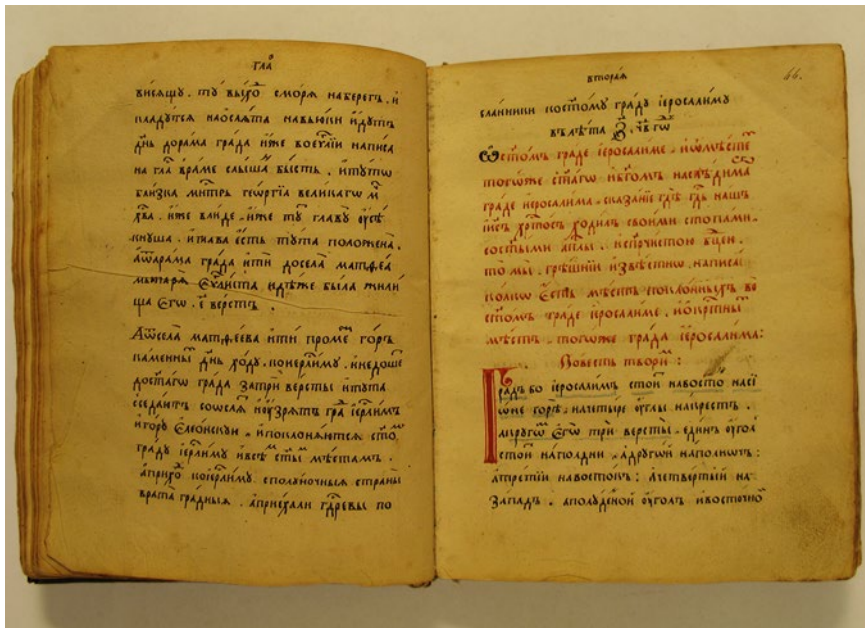 гла҃
висѧщꙋ . тꙋ выхо́ с моря на берегъ . и
кладꙋтсѧ на ослѧта навьюки и дꙋтъ
дн҃ь до рама града иже во еѵ҃лїи написа
на гла́ в раме слыша бысть . и тꙋто
близка георгїа великагѡ
иже главꙋ
кнꙋша . и глава есть тꙋта положена .
А ѿ рама града ити до села матѳеа
мытарѧ Еѵ҃листа идѣже была жили
ща Егѡ . е҃ верстъ .
А ѿ села матѳеева ити промеж горъ
каменны дн҃ь ходꙋ . ко иерл҃имꙋ . и не доше
до ст҃агѡ града за три версты и тꙋта
сседаютъ со ѡслѧ и ꙋзрѧтъ гра́ іер҃лимъ
и горꙋ Елеонскꙋю . и поклонѧютсѧ ст҃ѡ
градꙋ іер҃лимꙋ и всѣ ст҃ы мѣстамъ .
а прихо́ ко іерл҃имꙋ с полꙋночныѧ страны
врата градныѧ . а приехали г҃древы по
вторая
66.
сланники ко ст҃омꙋ градꙋ іеросалимꙋ
въ лѣта
Ѡ ст҃омъ граде іеросалиме . и ѡ мѣсте
тогѡже ст҃агѡ и б҃гомъ
граде іеросалима . сказанїе гдѣ г҃дь нашъ
іис҃ъ хр҃тосъ ходилъ своими стопами .
со ст҃ыми ап҃лы . и с пр҃чистою бц҃ею .
то мы . грѣшнїи извѣстнѡ . написа
колкѡ Есть мѣстъ поклонныхъ во
ст҃омъ граде іеросалиме . и ѡкр҃тны
мѣстъ . тогѡже града іеросалима :
Повесть твори́ :
Градъ бо іеросалимъ стои на восто́ на сї
ѡне горѣ . на четыре ꙋглы накрестъ .
а крꙋгѡ Егѡ три версты . единъ ꙋгол
стои на полдни . а дрꙋгїй на полнѡчъ :
а третїи на востокъ : а четвертїй на
Западъ . а полꙋденой ꙋголъ и восточно